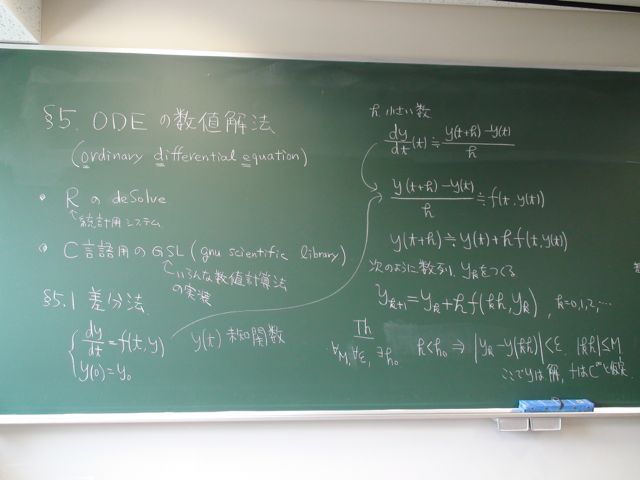 §5. ODE の数値解法
(ordinary differential equation)
• R の deSolve
↑統計用システム
• C言語用の GSL (gnu scientific library)
↑いろんな数値計算法
の実装
§5.1 差分法
{ dy/dt = f(t, y)
y(0) = y₀
y(t) 未知関数
h 小さい数
dy/dt (t) ≒ (y(t+h) − y(t))/h
(y(t+h) − y(t))/h ≒ f(t, y(t))
y(t+h) ≒ y(t) + h f(t, y(t))
次のように数列 yₖをつくる
yₖ₊₁ = yₖ + h f(kh, yₖ), k=0,1,2,…
Th
∀M, ∀ε, ∃h₀ h<h₀ ⇒ |yₖ − y(kh)| < ε. |kh| ≤ M
ここで yは解, fは C^∞ と仮定.